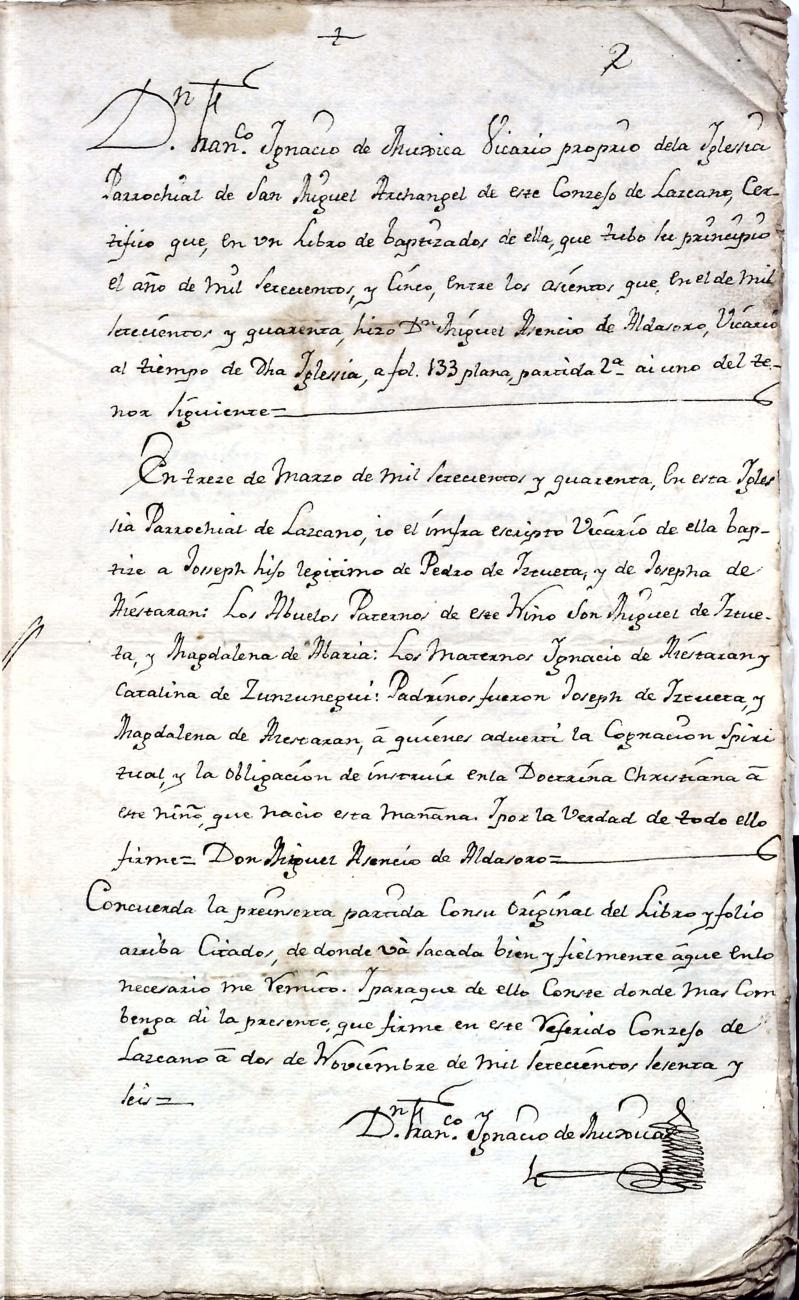 2
Dn. Franco. Ignacio de Muxica Vicario proprio dela Iglessia
Parrochial de San Miguel Archangel de este Conzejo de Lazcano, Cer-
tifico que, en un Libro de baptizados de ella, que tubo su principio
el año de mil setecientos, y Cinco, entre los asientos que, en el de mil
setecientos y quarenta, hizo Dn. Miguel Asencio de Aldasoro, Vicario
al tiempo de Dha Iglessia, a fol. 133 plana, partida 2a. ai uno del te-
nor siguiente=
En treze de Marzo de mil setecientos y quarenta, En esta Igles
sia Parrochial de Lazcano, io el imfra escripto Vicario de ella bap-
tize a Josseph hijo legitimo de Pedro de Iztueta, y de Josepha de
Aréstaran: Los Abuelos Paternos de este Nino son Miguel de Iztue-
ta, y Magdalena de Abaria: Los Maternos Ignacio de Aréstaran y
Catalina de Zunzunegui: Padrinos fueron Joseph de Iztueta, y
Magdalena de Arestaran, â quiénes adverti la Cognacion Spiri
tual, y la obligacion de instruir enla Doctrina Christiana â
este niño, que nacio esta mañana. Ipor la Verdad de todo ello
firme= Don Miguel Asencio de Aldasoro=
Concuerda la preinserta partida Consu Original del Libro y folio
arriba Citados, de donde và sacada bien y fielmente âque enlo
necesario me remito. Iparaque de ello Conste donde mas Com
benga di la presente, que firme en este referido Conzejo de
Lazcano â dos de Noviembre de mil setecientos sesenta y
seis=
Dn. Franco. Ignacio de Muxica